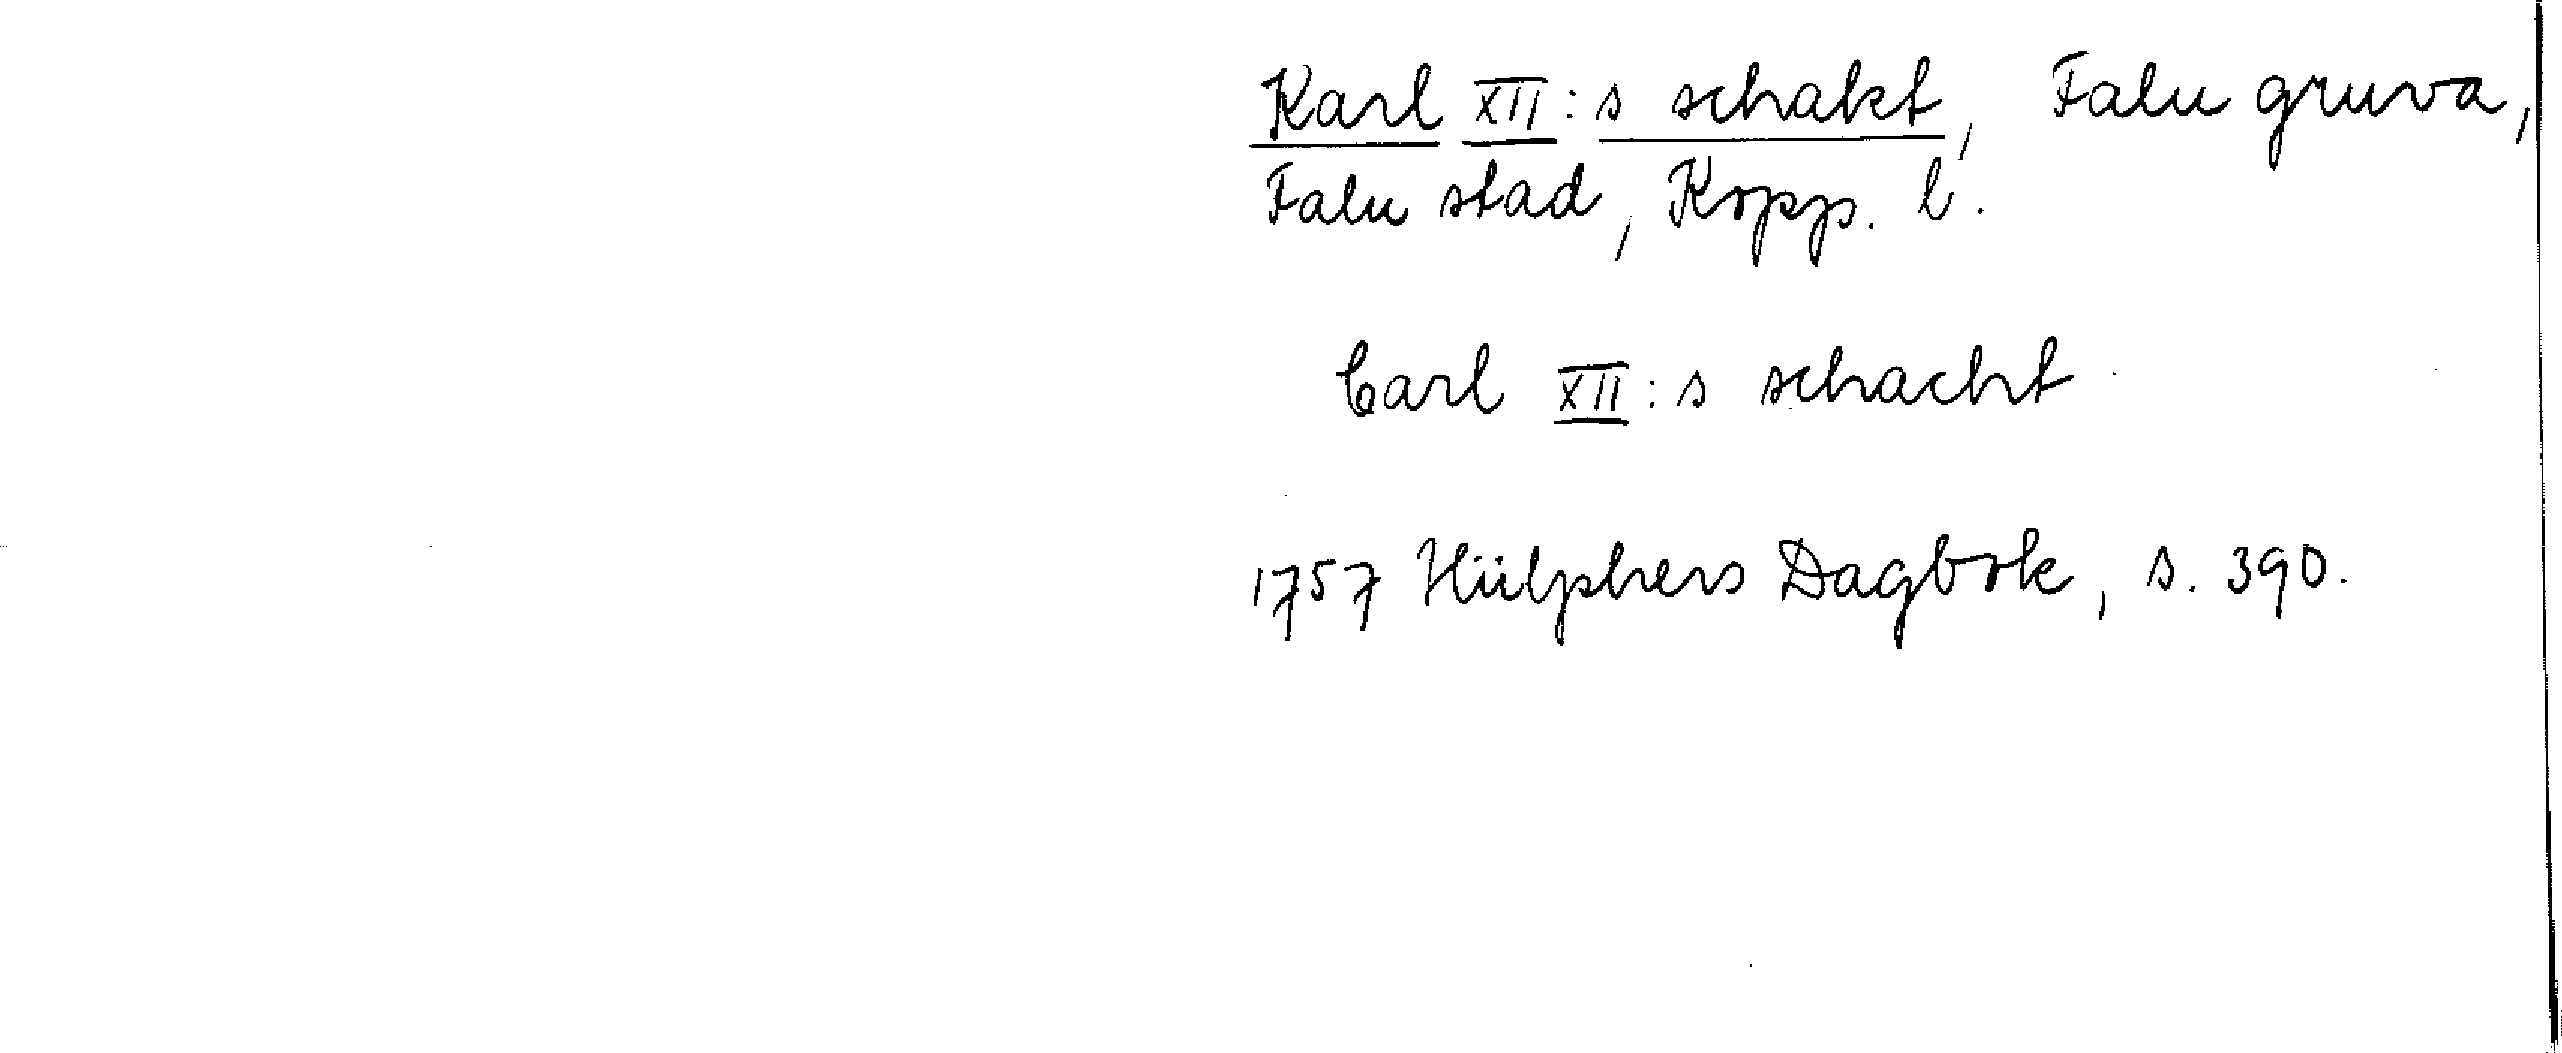 Karl XII:s schakt, Falu gruva,
Falu stad, Kopp. l.
Carl XII:s schacht
1757 Hülphers Dagbok, s. 390.